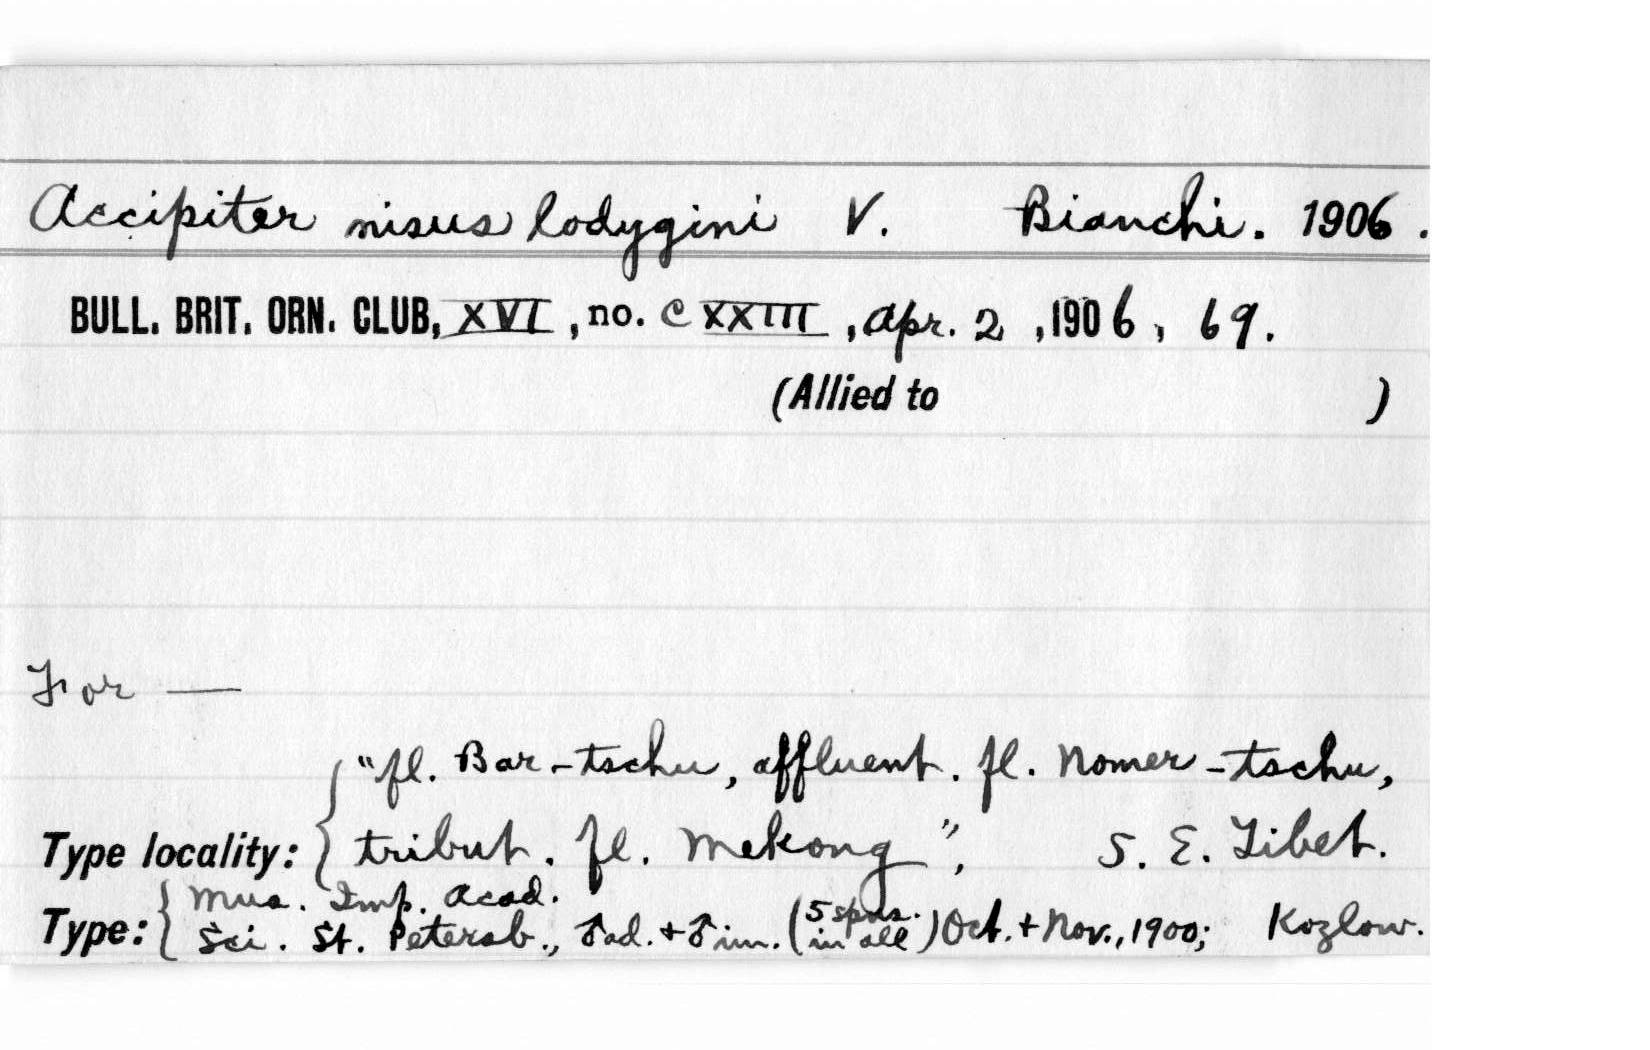 Accipiter nisus lodygini V. Bianchi. 1906.
BULL. BRIT. ORN. CLUB, XVI, no. CXXIII, Apr. 2, 1906, 69.
(Allied to )
For —
"fl. Bar-tschu, affluent. fl. Nomer-tschu,
Type locality: { tribut. fl. Mekong", S. E. Tibet.
Mus. Imp. Acad.
Type: { Sci. St. Petersb., ♂ ad. + ♂ im. (5 spns. in all) Oct. + Nov., 1900; Kozlow.